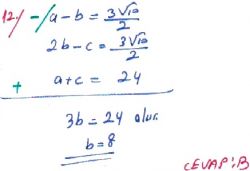 12/ -/ a - b = 3√10/2
2b - c = 3√10/2
+ a + c = 24
3b = 24 olur
b = 8
CEVAP: B